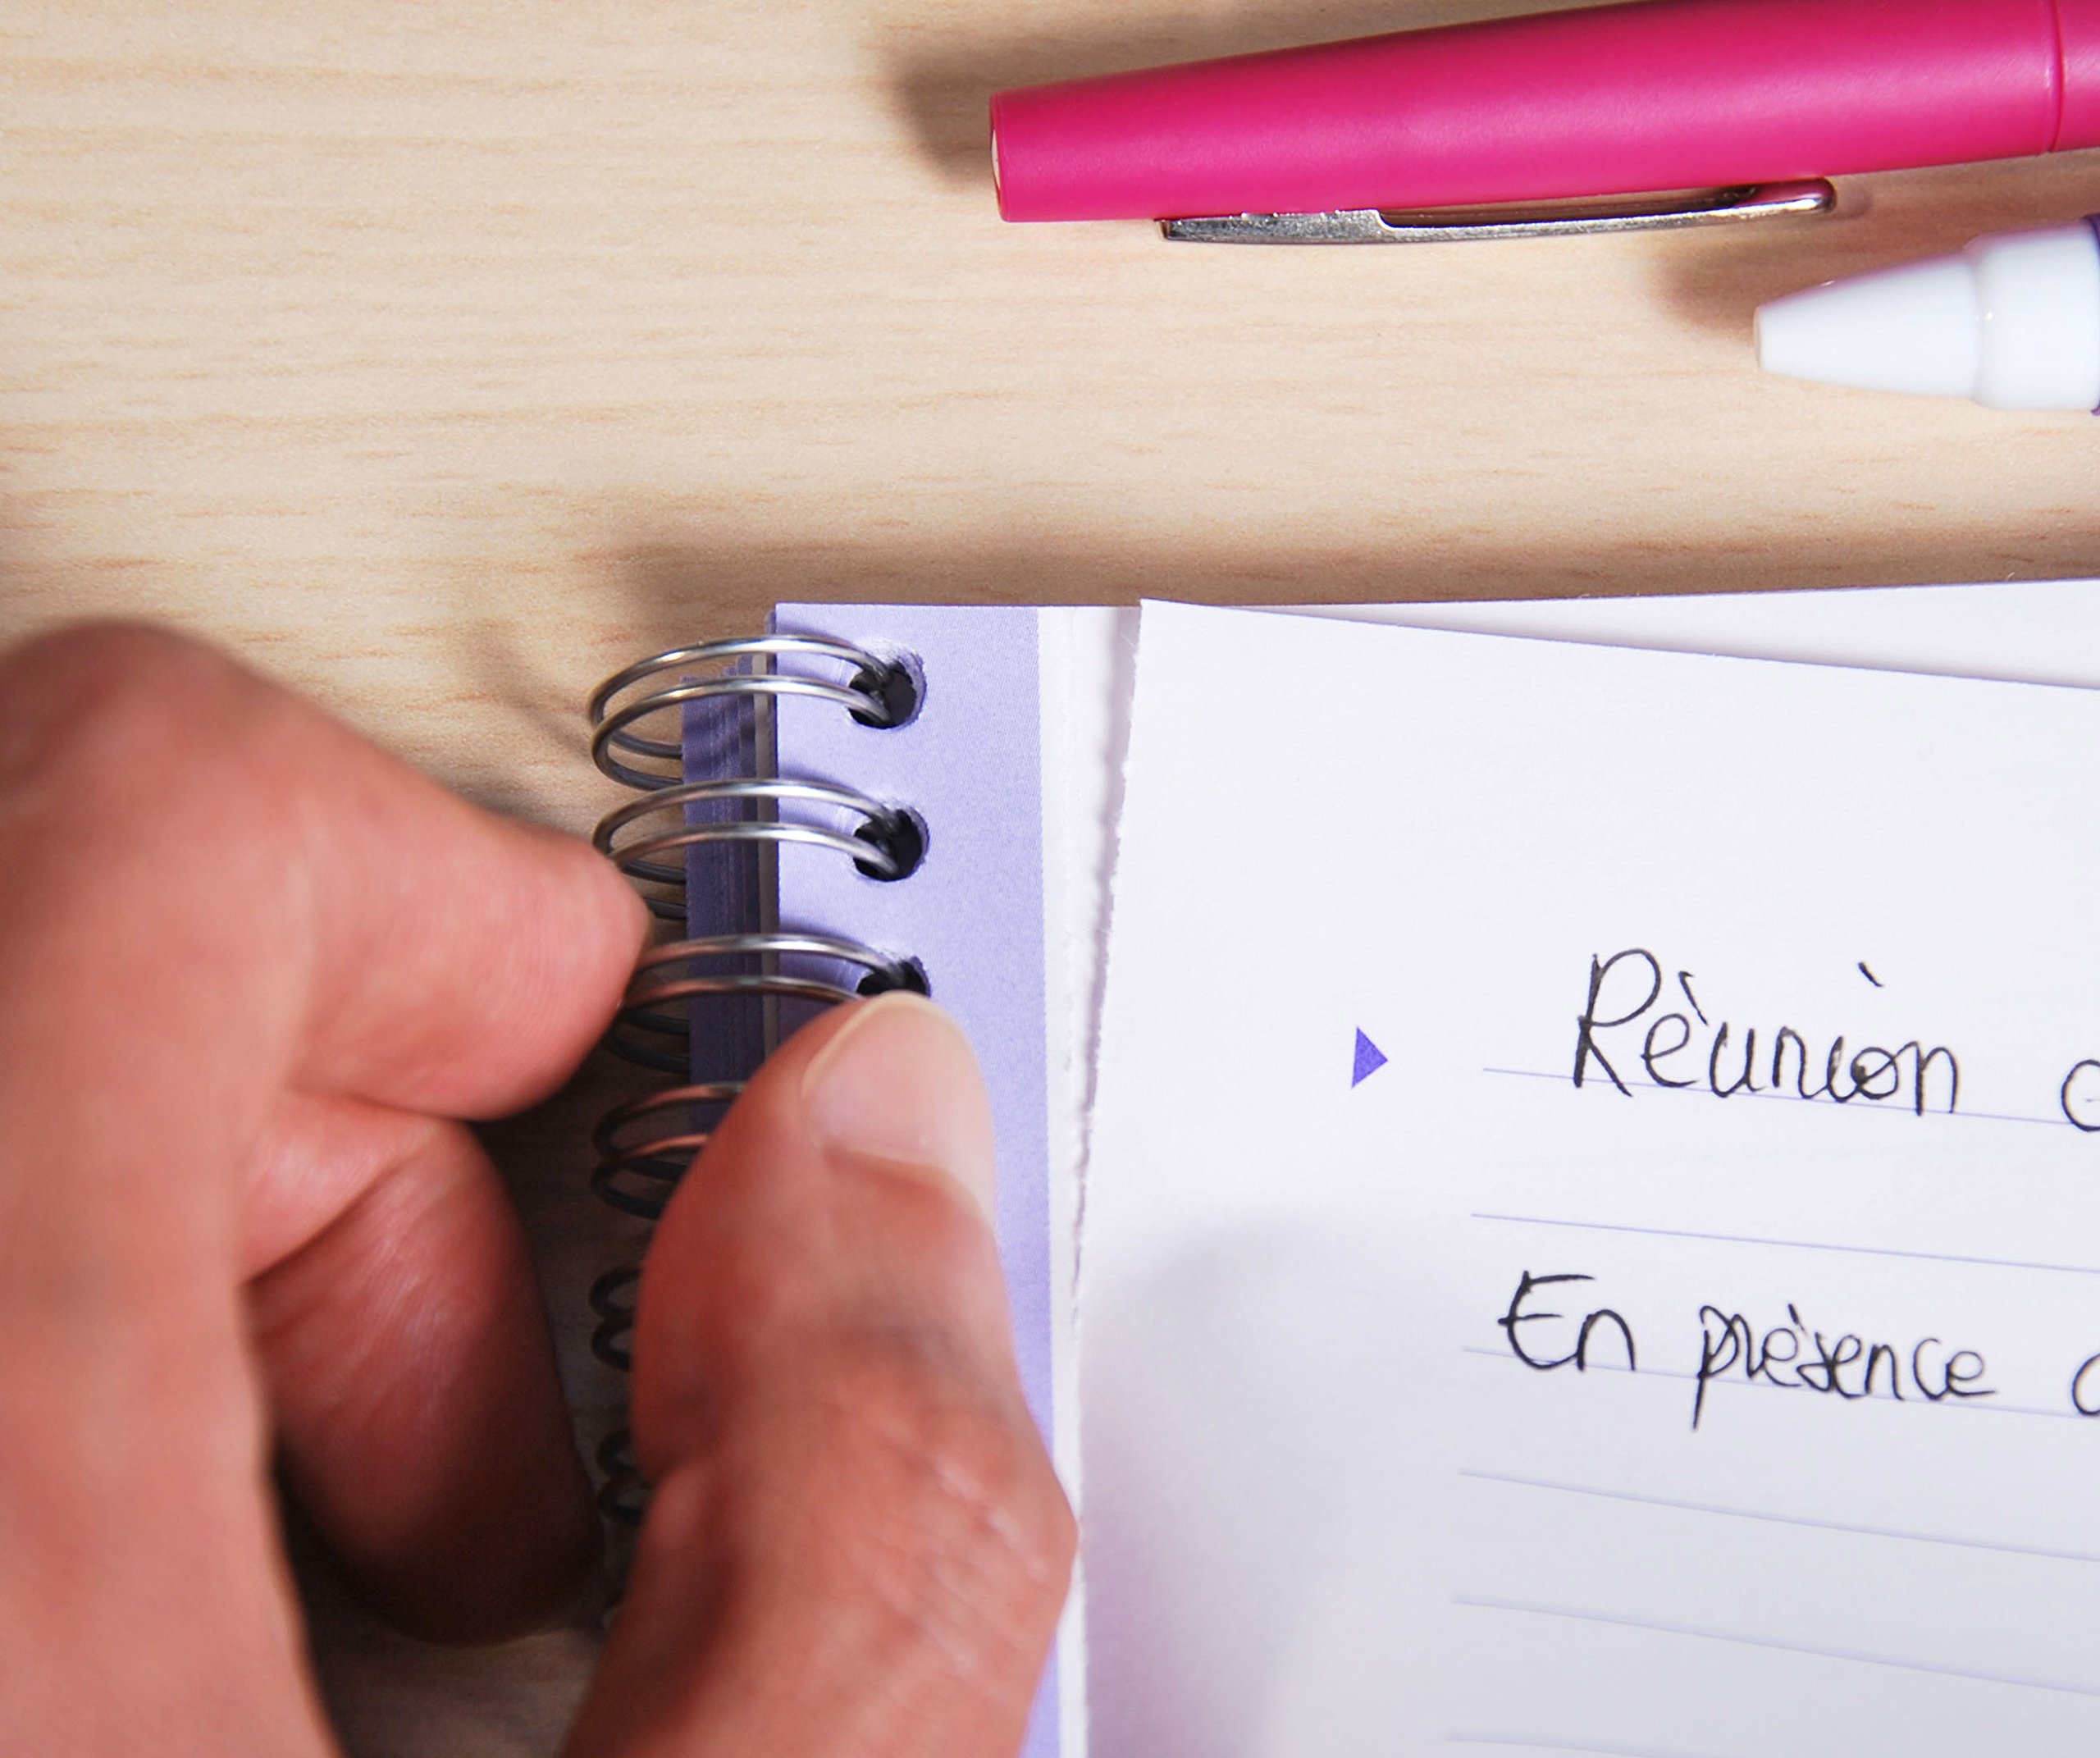 Rèunion
En prèsence